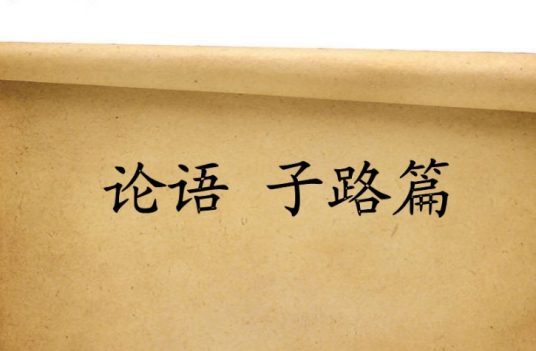 论语 子路篇